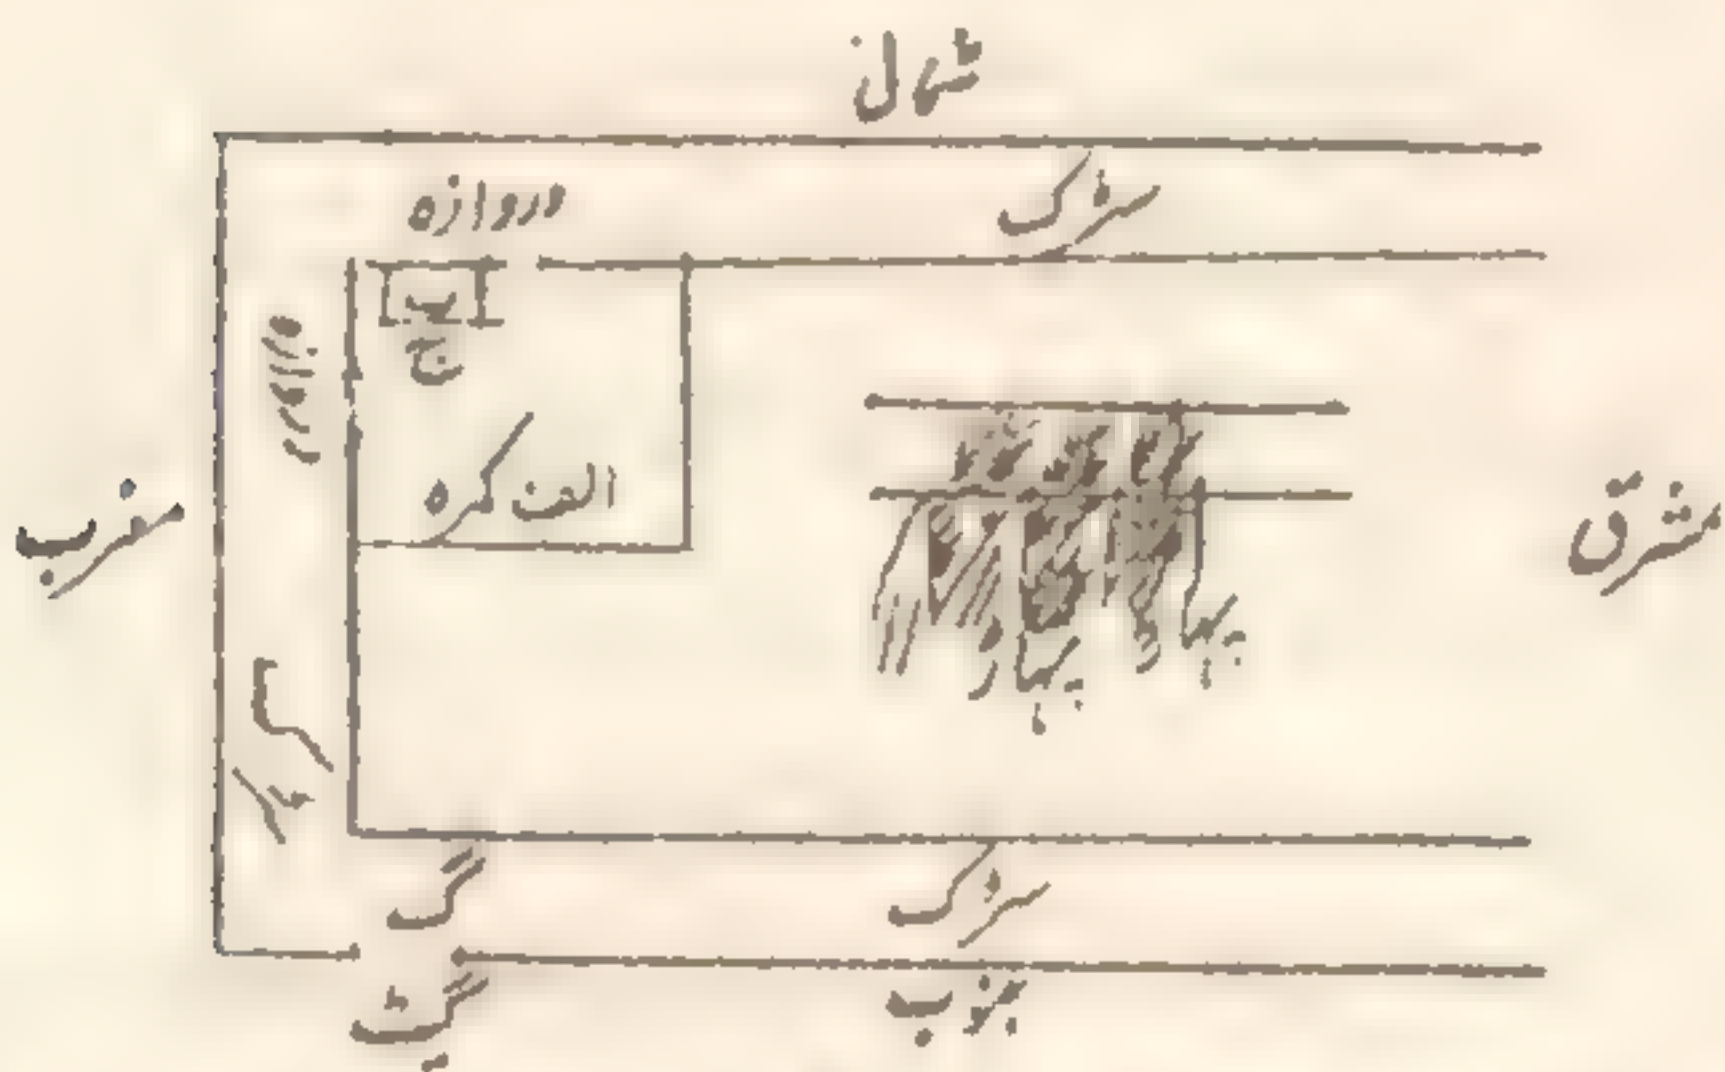 شمال
دروازہ
سڑک
ب
ج
الف کمرہ
مغرب
مشرق
پہاڑ
پہاڑ
گ
سڑک
گیٹ
جنوب